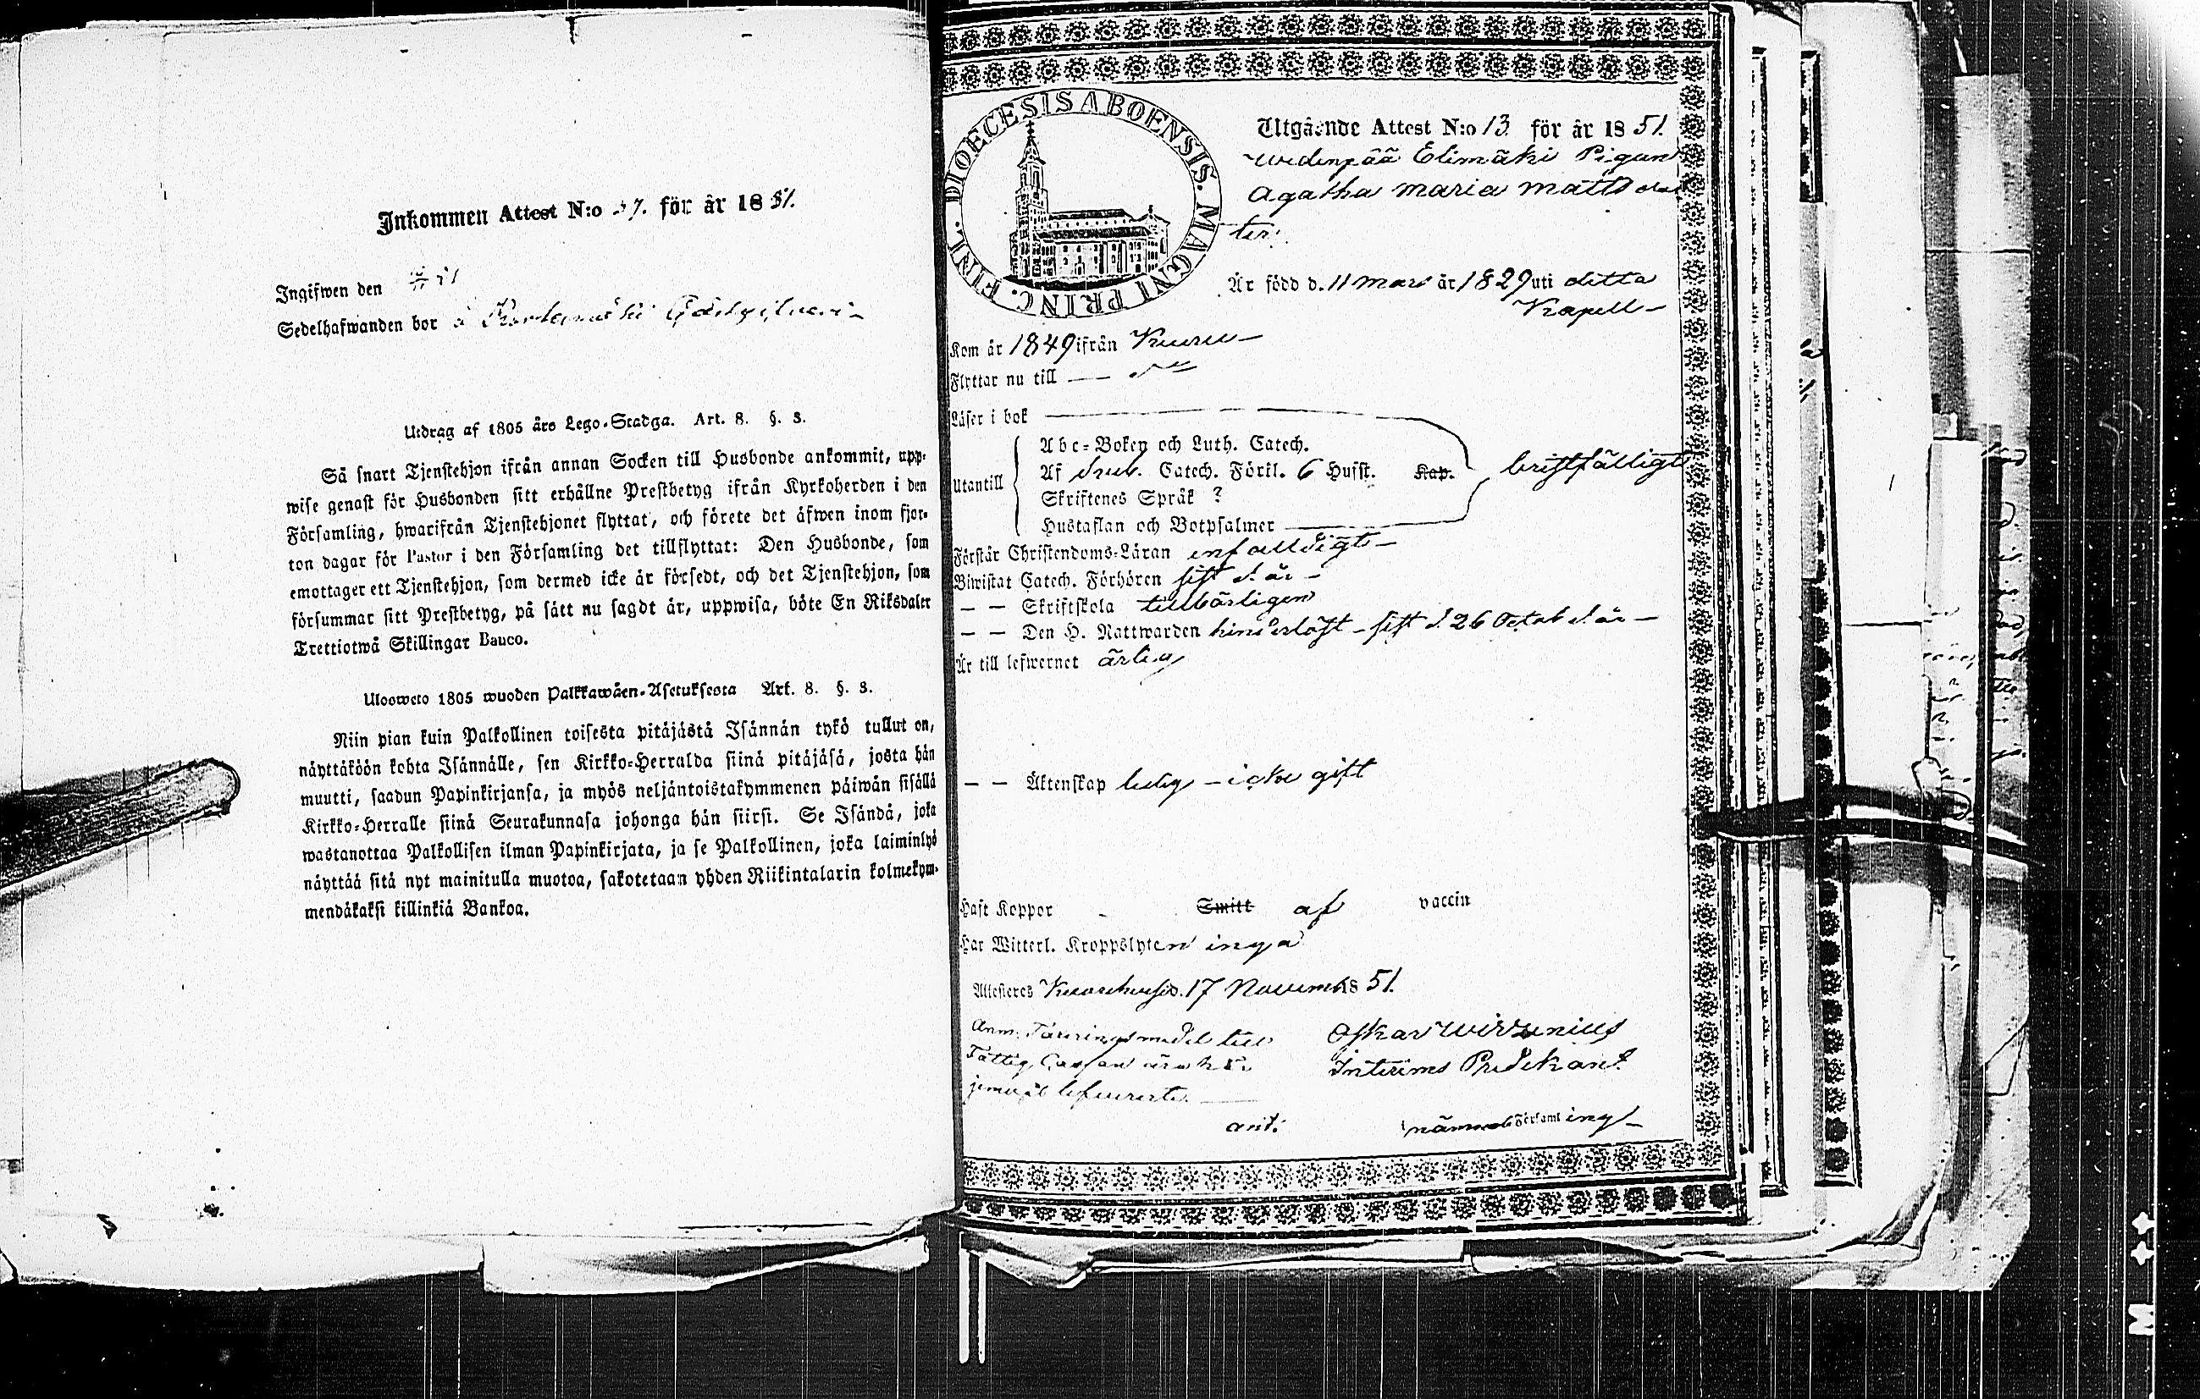 Inkommen Attest N:o 37. för år 1851.
Ingifwen den
Sedelhafwanden bor å
Utdrag af 1805 års Lego-Stadga. Art. 8. §. 3.
Så snart Tjenstehjon ifrån annan Socken till Husbonde ankommit, upp-
wise genast för Husbonden sitt erhållne Prestbetyg ifrån Kyrkoherden i den
Församling, hwarifrån Tjenstehjonet flyttat, och förete det äfwen inom fjor-
ton dagar för Pastor i den Församling det tillflyttat: Den Husbonde, som
emottager ett Tjenstehjon, som dermed icke är försedt, och det Tjenstehjon, som
försummar sitt Prestbetyg, på sätt nu sagdt är, uppwisa, böte En Riksdaler
Trettiotwå Skillingar Banco.
Uloosweto 1805 wuoden Palkkawäen-Asetuksesta Art. 8. §. 3.
Niin pian kuin Palkollinen toisesta pitäjästä Isännän tykö tullut on,
näyttäköön kohta Isännälle, sen Kirkko-Herralda siinä pitäjäsä, josta hän
muutti, saadun Papinkirjansa, ja myös neljäntoistakymmenen päiwän sisällä
Kirkko-Herralle siinä Seurakunnasa johonga hän siirsi. Se Isändä, joka
wastanottaa Palkollisen ilman Papinkirjata, ja se Palkollinen, joka laiminlyö
näyttää sitä nyt mainitulla muotoa, sakotetaan yhden Riikintalarin kolmekym-
mendäkaksi killinkiä Bankoa.
DIOECESIS ABOENSIS. MAGNI PRINC. FINL.
Utgående Attest N:o 13 för år 1851.
Elimäki Pigan
Agatha Maria Matts
ter.
Är född d. 11 Mars år 1829 uti ditto
Kapell –
Kom år 1849 ifrån Kuru –
Flyttar nu till
Läser i bok
Abc-Boken och Luth. Catech.
Utantill Af Catech. Förkl. 6 Hufst. Kap. bristfälligt
Skriftenes Språk ?
Hustaflan och Botpsalmer
Förstår Christendoms-Läran enfalldigt –
Biwistat Catech. Förhören sist d. år –
– – Skriftskola tillbörligen
– – Den H. Nattwarden hinderlöst – sist d. 26 Octob d. år –
Är till lefwernet ärlig
– – Äktenskap ledig – icke gift
Haft Koppor Smitt af vaccin
Har Witterl. Kroppslyten inga
Attesteres d. 17 Novemb 1851.
Anm. till Oskar
Interims Predikant
nämnde Församling –